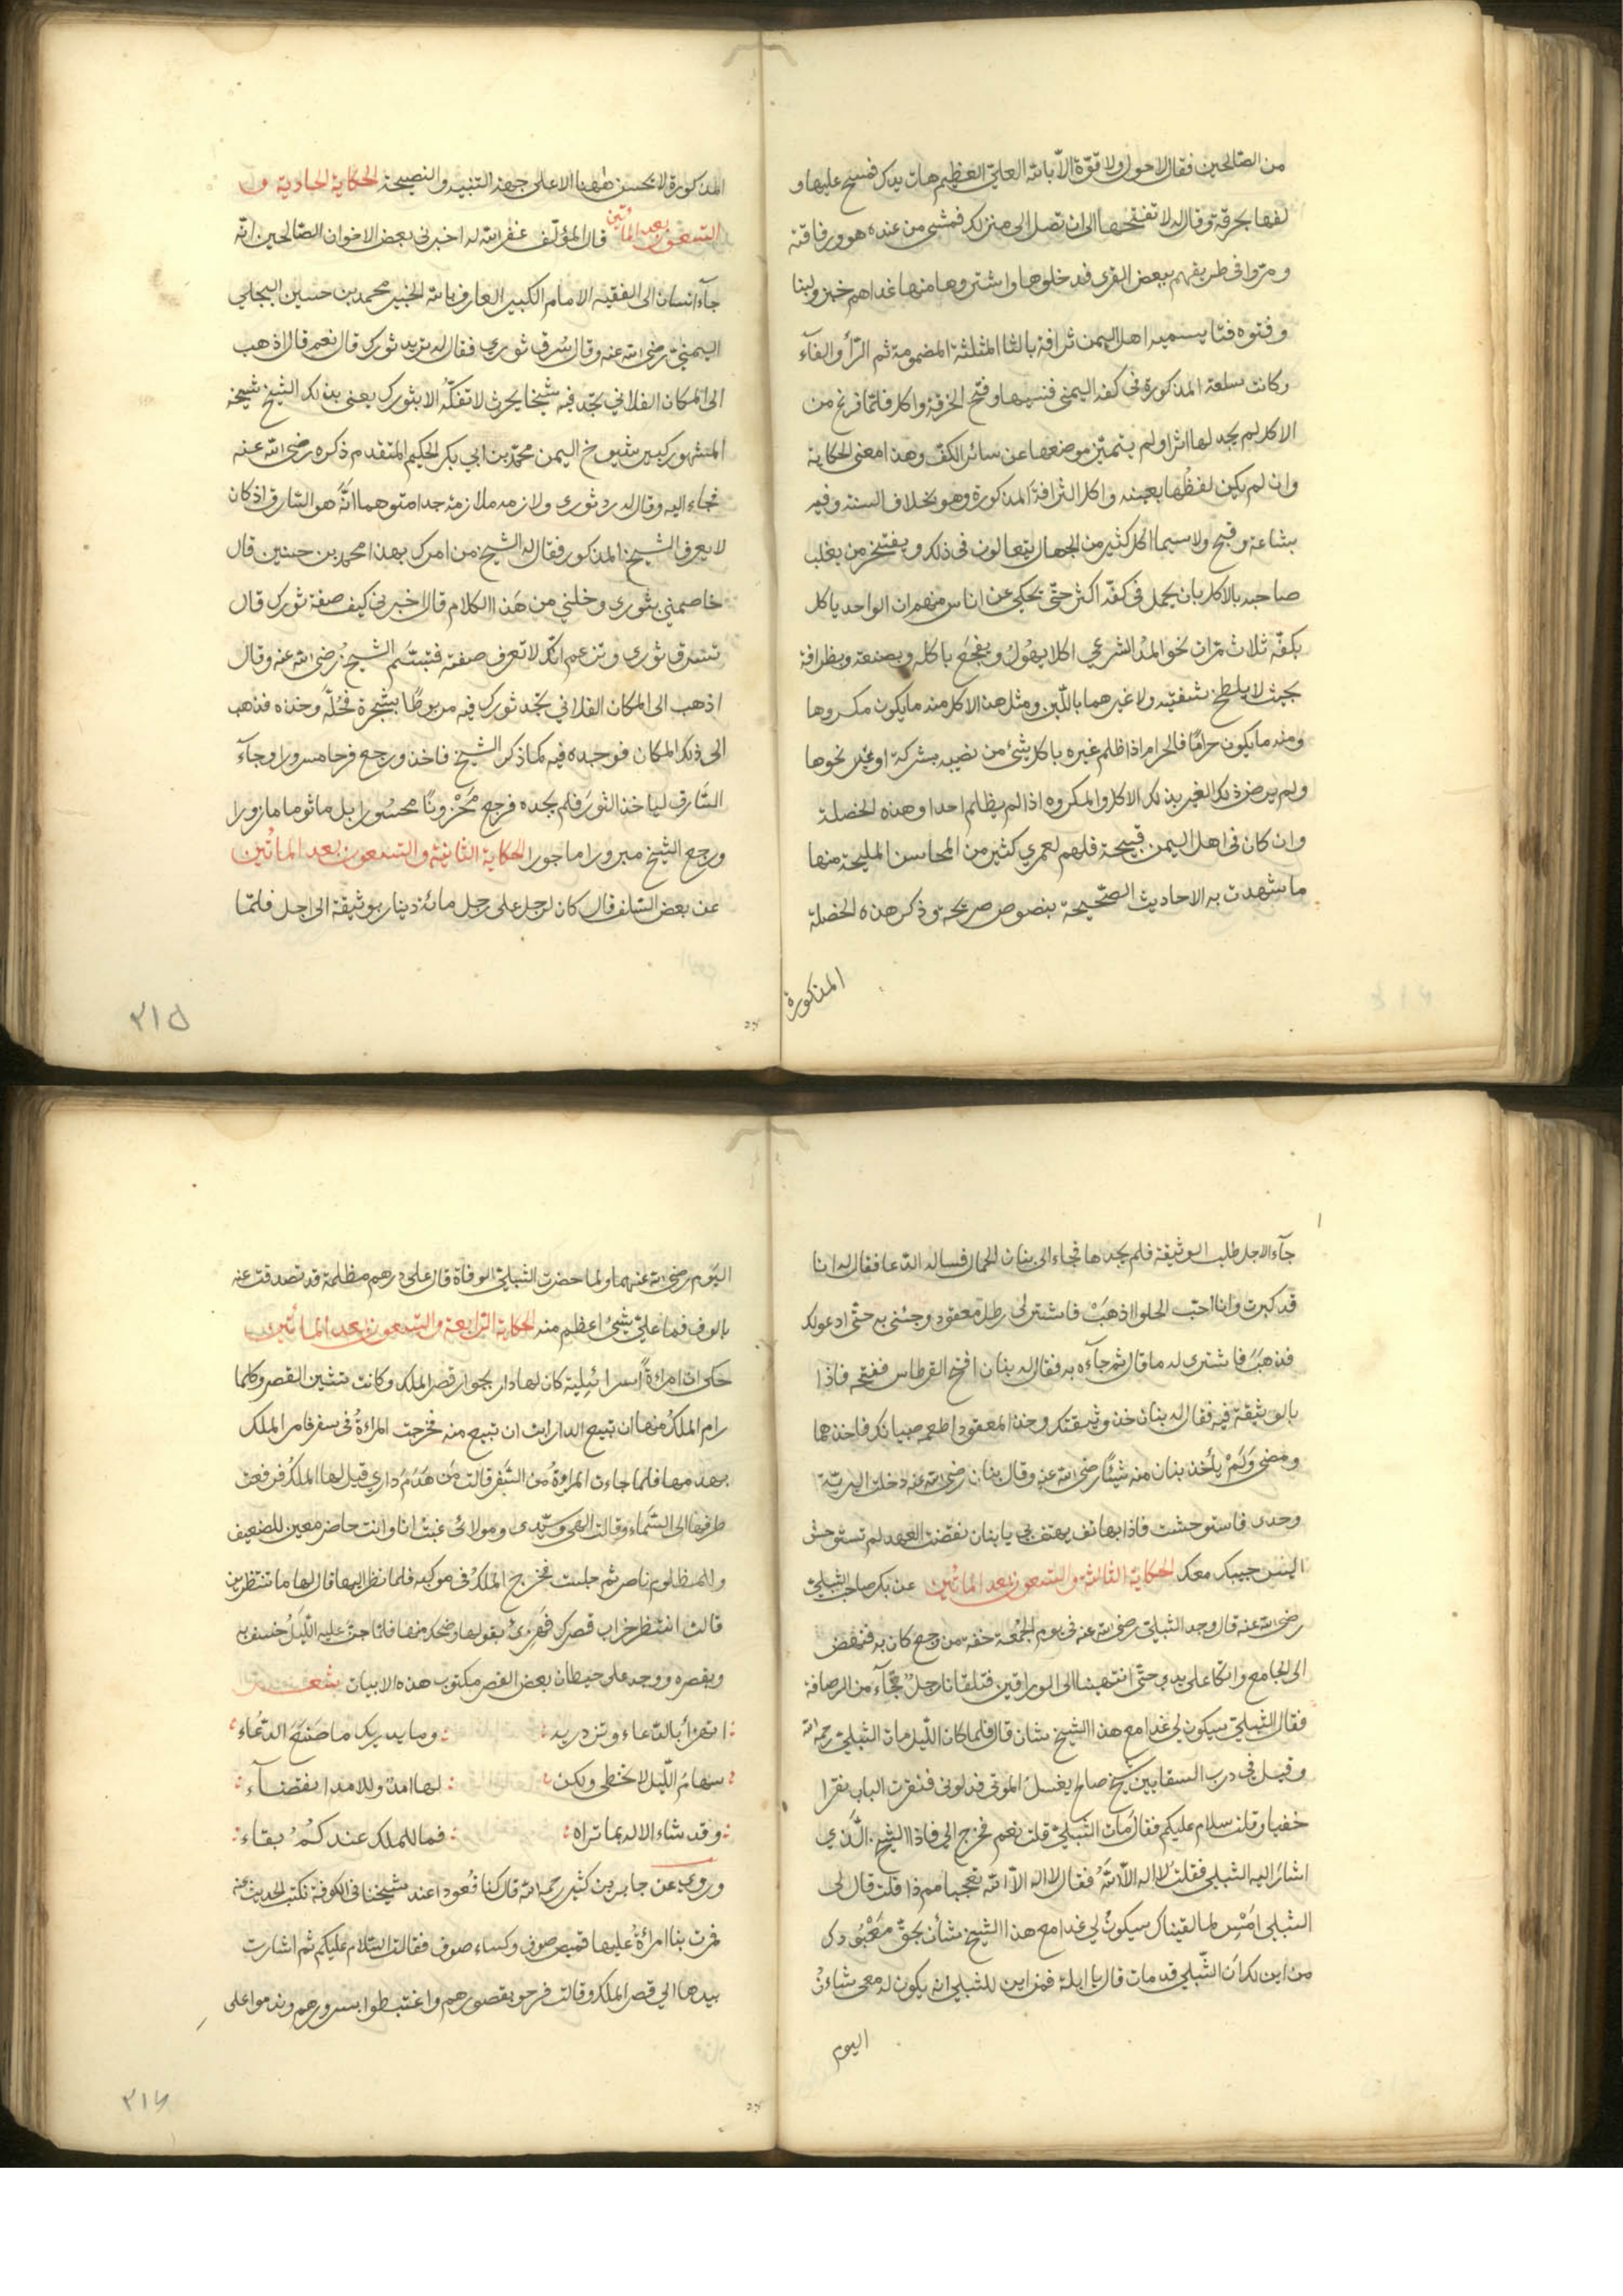 من الصالحين فقال لا حول ولا قوّة الّا بالله العليّ العظيم هات يدك فمسح عليها و
لفها بخرقة وقال له لا تفتحها الى ان تصل الى منزلك فمشى من عنده هو ورفاقته
ومرّوا فى طريقهم ببعض القرى فدخلوها واشتروا منها غداهم خبز ولبنا
وفتوه فتا يسميه اهل اليمن ثرافة بالثا المثلثة المضمومة ثم الرّا والفآء
وكانت سلعة المذكورة فى كفه اليمنى فنسيها وفتح الخرقة واكل فلمّا فرغ من
الاكل لم يجد لها اثرا ولم يتميّز موضعها عن سائر الكفّ وهذا معنى الحكاية
وان لم يكن لفظُها بعينه واكل الثرافة المذكورة وهو بخلاف السنة وفيه
بشاعة وقبح ولا سيما اكل كثير من الجهال يتعالون فى ذلك ويفتخر من يغلب
صاحبه بالاكل بان يحمل فى كفّه اكثر حتّى يحكى عن اناس منهم ان الواحد ياكل
بكفّه ثلاث مرّات نحو المدّ الشرعي اكلا يهُولُ ويفجَع باكله وبصنعة وبظرافة
بحيث لا يلطخ شفتيه ولا غيرهما باللّبن ومثل هذا الاكل منه ما يكون مكروها
ومنه ما يكون حرامًا فالحرام اذا ظلم غيره باكل شئ من نصيبه بشركة او غير نحوها
ولم يرض ذلك الغير بذلك الاكل والمكروه اذا لم يظلم احدا وهذه الخصلة
وان كان فى اهل اليمن قبيحة فلهم لعمري كثير من المحاسن المليحة منها
ما شهدت به الاحاديث الصّحيحة بنصوص صريحة وذكر هذه الخصلة
المذكورة
المذكورة لا تحسن ههنا الا على جهة التنبيه والنصيحة الحكاية الحادية و
التسعون بعد المائتين قال المؤلّف غفر الله له اخبرنى بعض الاخوان الصّالحين انّه
جآء انسان الى الفقيه الامام الكبير العارف بالله الخبير محمد بن حسين البجلي
اليمنىّ رضى الله عنه وقال سُرق ثوري فقال له تريد ثورك قال نعم قال اذهب
الى المكان الفلانى تجد فيه شيخا يحرث لا تفكّه الا بثورك يعنى بذلك الشيخ شيخه
المشهور كبير شيوخ اليمن محمّد بن ابي بكر الحكيم المتقدم ذكره رضى الله عنه
فجاء اليه وقال له رد ثوري ولازمه ملازمة جدا متوهما انّه هو السّارق اذ كان
لا يعرف الشيخ المذكور فقال له الشيخ من امرك بهذا محمد بن حسين قال
خاصمني بثوري وخلني من هذا الكلام قال اخبرنى كيف صفة ثورك قال
تسرق ثوري وتزعم انّك لا تعرف صفته فتبسّم الشيخُ رضى الله عنه وقال
اذهب الى المكان الفلانى تجد ثورك فيه مربوطًا بشجرة فحُلّه وخذه فذهب
الى ذلك المكان فوجده فيه كما ذكر الشيخ فاخذه ورجع فرحا مسرورا وجآء
السّارق لياخذ الثورَ فلم يجده فرجع مَحْزونًا محسُورا بل ماثوما مازورا
ورجع الشيخ مبرورا ماجورا الحكاية الثانية والتسعون بعد المائتين
عن بعض السّلف قال كان لرجل على رجل مائة دينار بوثيقة الى اجل فلمّا
٢١٥
جآء الاجل طلب الوثيقة فلم يجدها فجاء الى بنان الحمال فساله الدّعا فقال له انا
قد كبرت وانا احبّ الحلوا اذهَبْ فاشتر لى رطل معقود وجئنى به حتّى ادعو لك
فذهبَ فاشترى له ما قال ثم جآءه به فقال له بنان افتح القرطاس ففتحه فاذا
بالوثيقة فيه فقال له بنان خذ وثيقتك وخذ المعقود اطعمه صبيانك فاخذهما
ومضى وَلَمْ يأخذ بنان منه شيئًا رضى الله عنه وقال بنان رضى الله عنه دخلت البريّة
وحدى فاستوحشت فاذا بهاتف يهتف بي يا بنان نقضت العهد لم تستوحش
اليس حبيبك معك الحكاية الثالثة والتسعون بعد المائتين عن بكر صاحب الشبليّ
رضى الله عنه قال وجد الشّبلى رضى الله عنه فى يوم الجُمْعة خفه من وجع كان به فنهض
الى الجامع واتكا على يدي حتّى انتهينا الى الوراقين فتلقانا رجلٌ جآء من الرصافة
فقال الشّبلىّ سيكون لي غدا مع هذا الشيخ شان قال فلما كان اللّيل مات الشّبلىّ رحمه الله
وقيل فى درب السقايين شيخ صالح يغسل الموتى فدلونى فنقرت الباب نقرا
خفيا وقلت سلام عليكم فقال مات الشّبليّ قلت نعم فخرج الي فاذا الشيخ الَّذي
اشار اليه الشبلي فقلتُ لا اله الّا اللهُ فقال لا اله الّا الله تعجبا مم ذا قلت قال لى
الشبلى امْسِ لما لقيناك سيكونُ لي غدا مع هذا الشيخ شأن بحقّ مَعْبُودك
من اين لك ان الشّبلى قد مات قال يا ابله فمن اين للشبلي انه يكون له معى شاءنٌ
اليوم
اليَوم رضى الله عنهما ولما حضرت الشبلىّ الوفاة قال على درهم مظلمة قد تصدقت عنه
بالوف فما علىّ شئ اعظم منه الحكاية الرّابعة والتسعون بعد المائتين
حكى ان امرأةً اسرائيلية كان لها دار بجوار قصر الملك وكانت تشين القصر وكلما
رام الملكُ منها ان تبيع الدار ابت ان تبيع منه فخرجت المراةُ فى سفر فامر الملك
بهدمها فلما جاءت المراةُ من السَّفر قالت مَن هَدَمَ داري قيل لها الملكُ فرفعت
طرفها الى السَّماء وقالت الهى وسيّدى ومولائى غبتُ انا وانت حاضر معين للضعيف
وللمظلوم ناصر ثم جلست فخرج الملكُ فى موكبه فلما نظر اليها قال لها ما تنتظرين
قالت انتظر خراب قصرك فهزئ بقولها وضحك منها فلمّا جنَّ عليه اللّيل خسف به
وبقصره ووجد على حيطان بعض القصر مكتوب هذه الابيات شعر
اتهزأ بالدّعاء وتزدريه وما يدريك ما صَنَعَ الدّعَاء
سهامُ اللّيل لا تخطى ولكن لها امدٌ وللامد انقضآء
وقد شاء الاله بما تراه فما للملك عندكُمُ بقاء
وروى عن جابر بن كثير رحمه الله قال كنا قُعودا عند شيخنا فى الكوفة نكتب الحديث عنه
فمرت بنا امرأةٌ عليها قميص صوف وكساء صوف فقالت السّلام عليكم ثم اشارت
بيدها الى قصر الملك وقالت فرحو بقصورهم واغتبطوا بسرورهم وندموا على
٢١٦